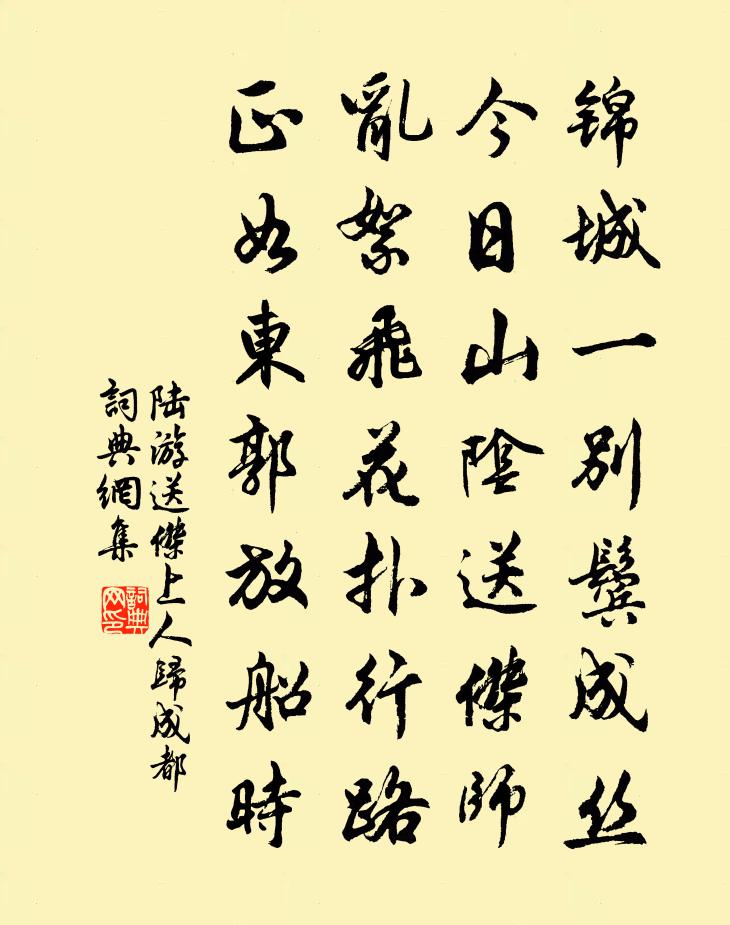 锦城一别鬓成丝
今日山陰送傑师
亂絮飛花扑行路
正如東郭放船時
陆游送傑上人歸成都
詞典網集
詞典网印